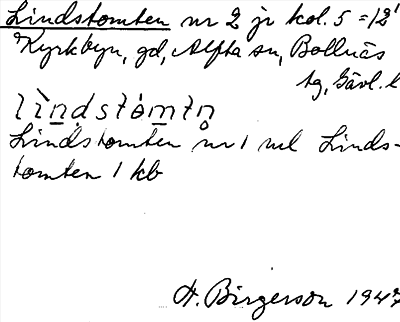 Lindstomten nr 2 jr kol. 5 = 12¹
Kyrkbyn, gd, Alfta sn, Bollnäs
tg, Gävl. l
lìn̲dstòm̲tn̥
Lindstomten nr 1 ml Linds-
tomten 1 kb
H. Birgerson 1947